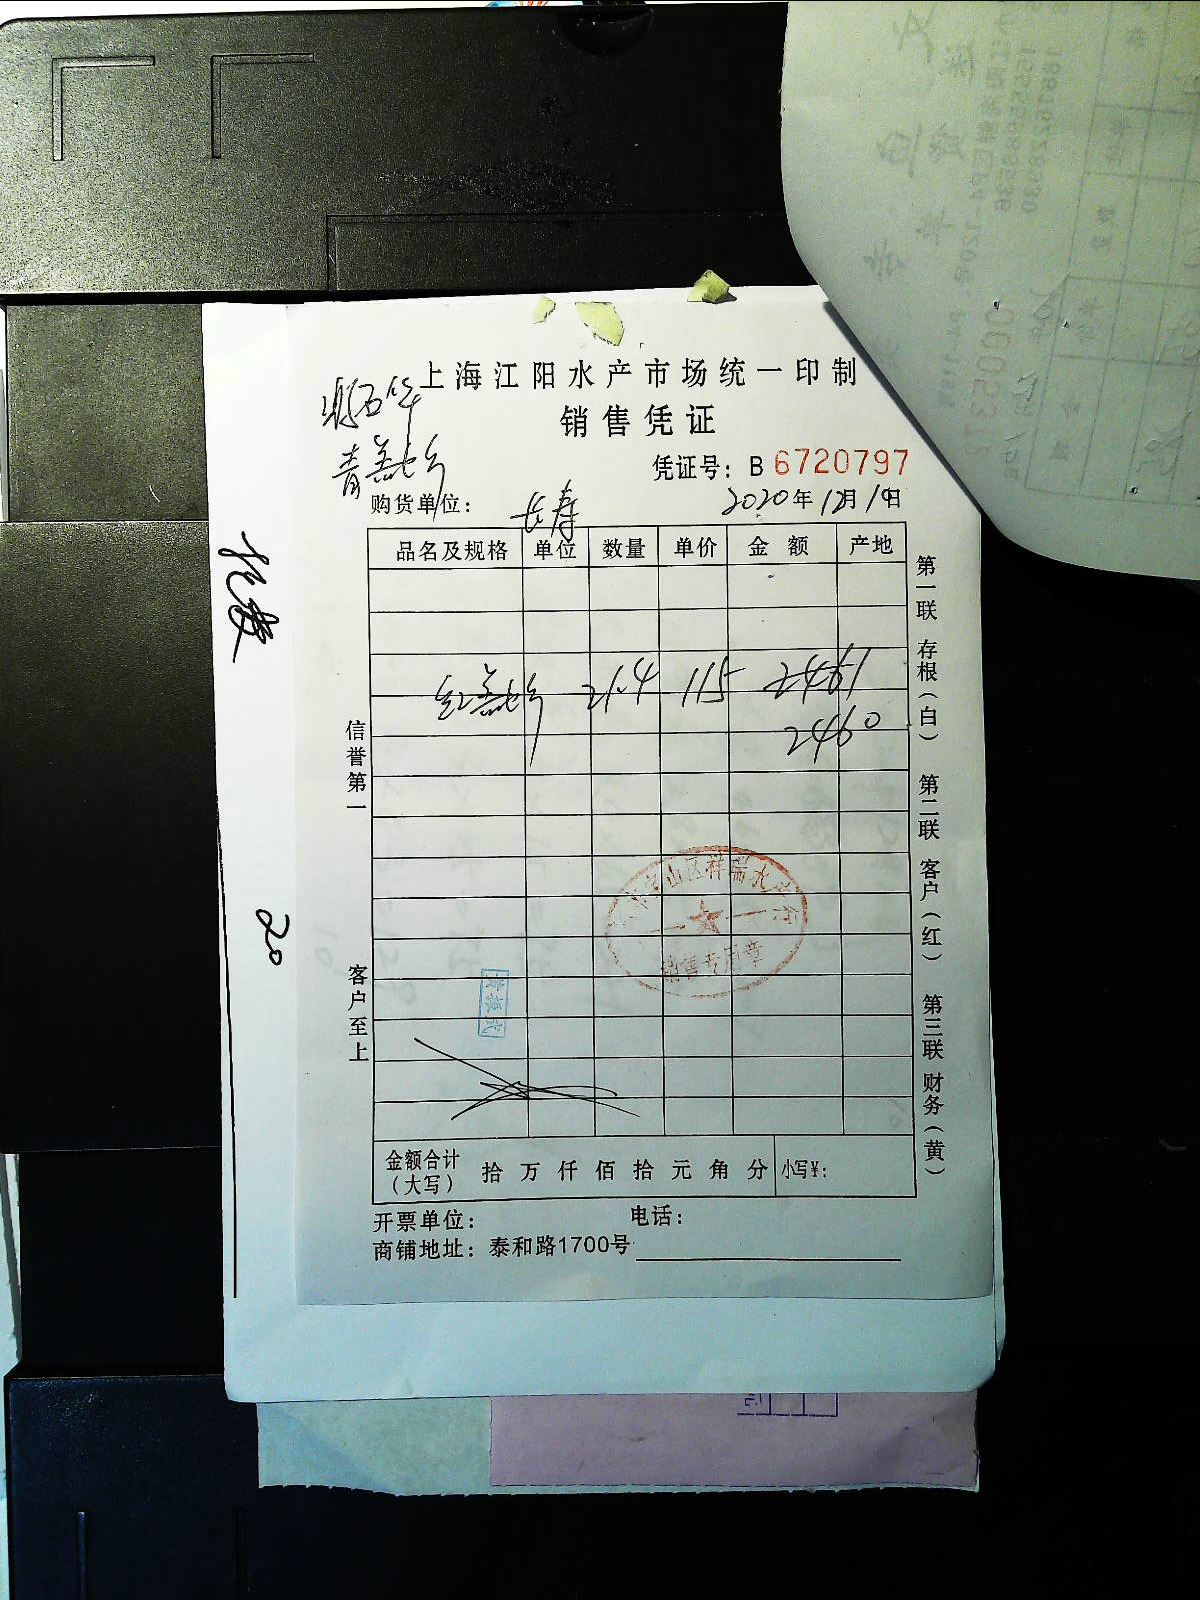 上海江阳水产市场统一印制
销售凭证
凭证号：B 6720797
购货单位：长寿
2020年12月19日
品名及规格 单位 数量 单价 金额 产地
21.4 115 2461
2460
信誉第一
客户至上
第一联 存根（白） 第二联 客户（红） 第三联 财务（黄）
山区祥瑞水产行
销售专用章
金额合计（大写） 拾万仟佰拾元角分 小写¥：
开票单位： 电话：
商铺地址：泰和路1700号
20